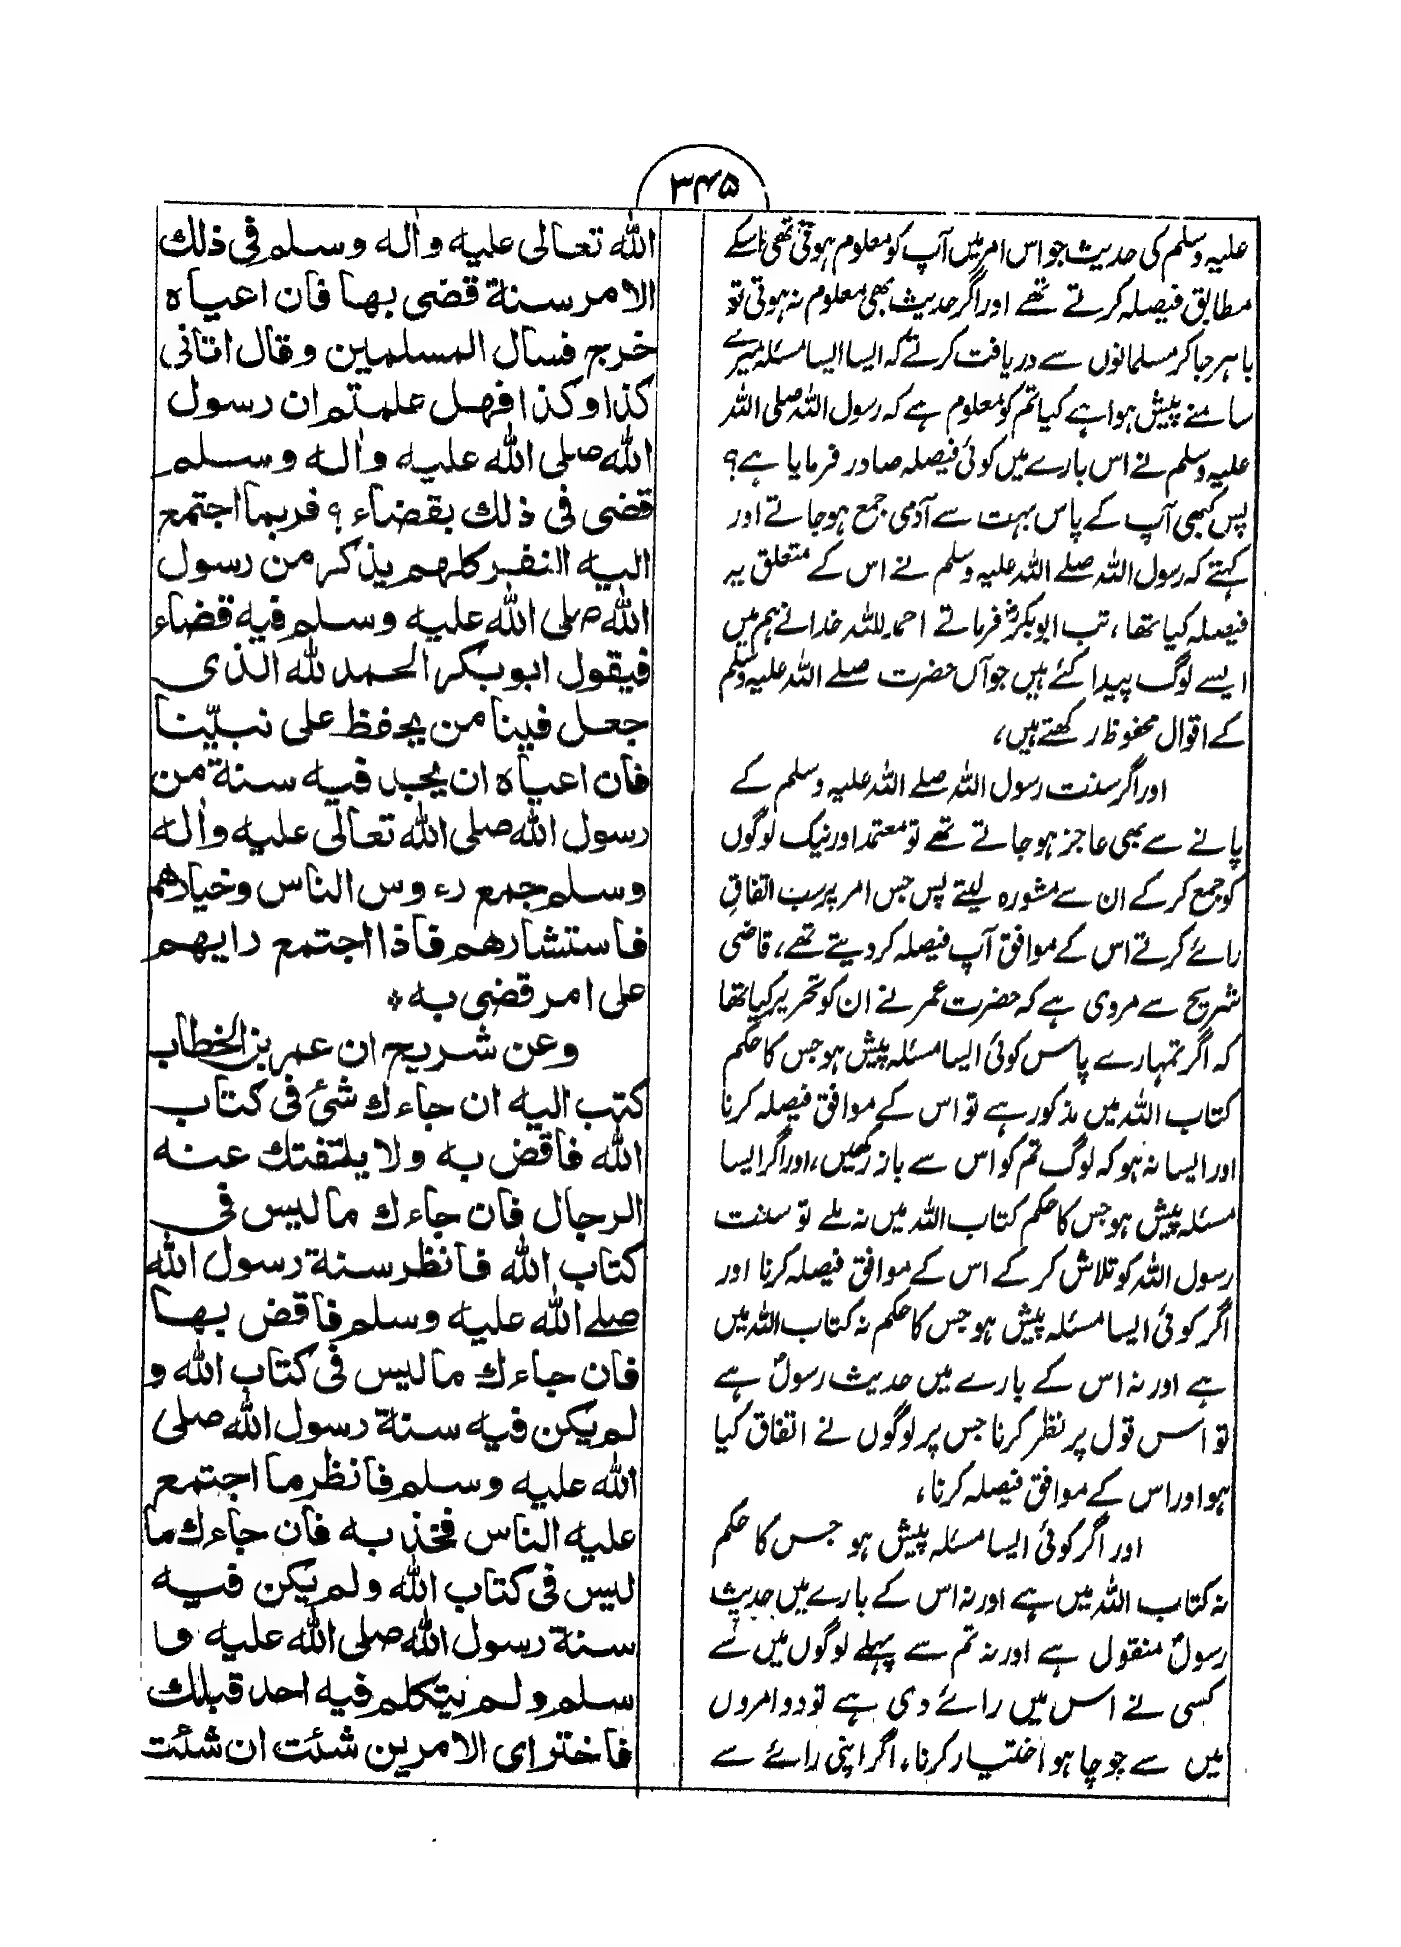 ۳۴۵
علیہ وسلم کی حدیث جو اس امر میں آپ کو معلوم ہوتی تھی اسکے
مطابق فیصلہ کرتے تھے اور اگر حدیث بھی معلوم نہ ہوتی تو
باہر جا کر مسلمانوں سے دریافت کرتے کہ ایسا ایسا مسئلہ میرے
سامنے پیش ہوا ہے کیا تم کو معلوم ہے کہ رسول اللہ صلی اللہ
علیہ وسلم نے اس بارے میں کوئی فیصلہ صادر فرمایا ہے؟
پس کبھی آپ کے پاس بہت سے آدمی جمع ہو جاتے اور
کہتے کہ رسول اللہ صلے اللہ علیہ وسلم نے اس کے متعلق یہ
فیصلہ کیا تھا، تب ابوبکرؓ فرماتے احمد للہ خدا نے ہم میں
ایسے لوگ پیدا کئے ہیں جو آں حضرت صلے اللہ علیہ وسلم
کے اقوال محفوظ رکھتے ہیں،
اور اگر سنت رسول اللہ صلے اللہ علیہ وسلم کے
پانے سے بھی عاجز ہو جاتے تھے تو معتمد اور نیک لوگوں
کو جمع کر کے ان سے مشورہ لیتے پس جس امر پر سب اتفاقِ
رائے کرتے اس کے موافق آپ فیصلہ کر دیتے تھے، قاضی
شریح سے مروی ہے کہ حضرت عمر نے ان کو تحریر کیا تھا
کہ اگر تمہارے پاس کوئی ایسا مسئلہ پیش ہو جس کا حکم
کتاب اللہ میں مذکور ہے تو اس کے موافق فیصلہ کرنا
اور ایسا نہ ہو کہ لوگ تم کو اس سے باز رکھیں، اور اگر ایسا
مسئلہ پیش ہو جس کا حکم کتاب اللہ میں نہ ملے تو سنت
رسول اللہ کو تلاش کر کے اس کے موافق فیصلہ کرنا اور
اگر کوئی ایسا مسئلہ پیش ہو جس کا حکم نہ کتاب اللہ میں
ہے اور نہ اس کے بارے میں حدیث رسولؐ ہے
تو اس قول پر نظر کرنا جس پر لوگوں نے اتفاق کیا
ہو اور اس کے موافق فیصلہ کرنا،
اور اگر کوئی ایسا مسئلہ پیش ہو جس کا حکم
نہ کتاب اللہ میں ہے اور نہ اس کے بارے میں حدیث
رسولؐ منقول ہے اور نہ تم سے پہلے لوگوں میں سے
کسی نے اس میں رائے دی ہے تو دو امروں
میں سے جو چاہو اختیار کرنا، اگر اپنی رائے سے
الله تعالى عليه واٰله وسلم في ذلك
الامر سنة قضى بها فان اعياه
خرج فسأل المسلمين وقال اتانى
كذا وكذا فهل علمتم ان رسول
الله صلى الله عليه واٰله وسلم
قضى فى ذلك بقضاء ؟ فربما اجتمع
اليه النفر كلهم يذكر من رسول
الله صلى الله عليه وسلم فيه قضاء
فيقول ابوبكر الحمد لله الذى
جعل فينا من يحفظ على نبيّنا
فان اعياه ان يجد فيه سنة من
رسول الله صلى الله تعالى عليه واٰله
وسلم جمع رءوس الناس وخيارهم
فاستشارهم فاذا اجتمع رايهم
على امر قضى به *
وعن شريح ان عمر بن الخطاب
كتب اليه ان جاءك شئ فى كتاب
الله فاقض به ولا يلتفتك عنه
الرجال فان جاءك ما ليس فى
كتاب الله فانظر سنة رسول الله
صلے الله عليه وسلم فاقض بها
فان جاءك ما ليس فى كتاب الله و
لم يكن فيه سنة رسول الله صلى
الله عليه وسلم فانظر ما اجتمع
عليه الناس فخذ به فان جاءك ما
ليس فى كتاب الله ولم يكن فيه
سنة رسول الله صلى الله عليه و
سلم ولم يتكلم فيه احد قبلك
فاختر اى الامرين شئت ان شئت